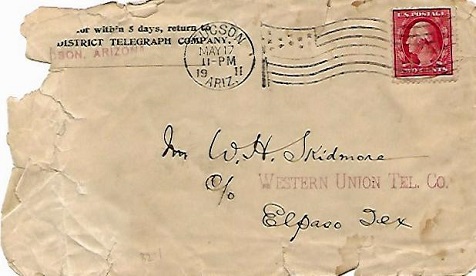 for within 5 days, return to
DISTRICT TELEGRAPH COMPANY.
SON, ARIZONA
TUCSON
MAY 17
11-PM
19 11
ARIZ.
U.S. POSTAGE
CENTS
W. H. Skidmore
c/o WESTERN UNION TEL. CO.
Elpaso Tex